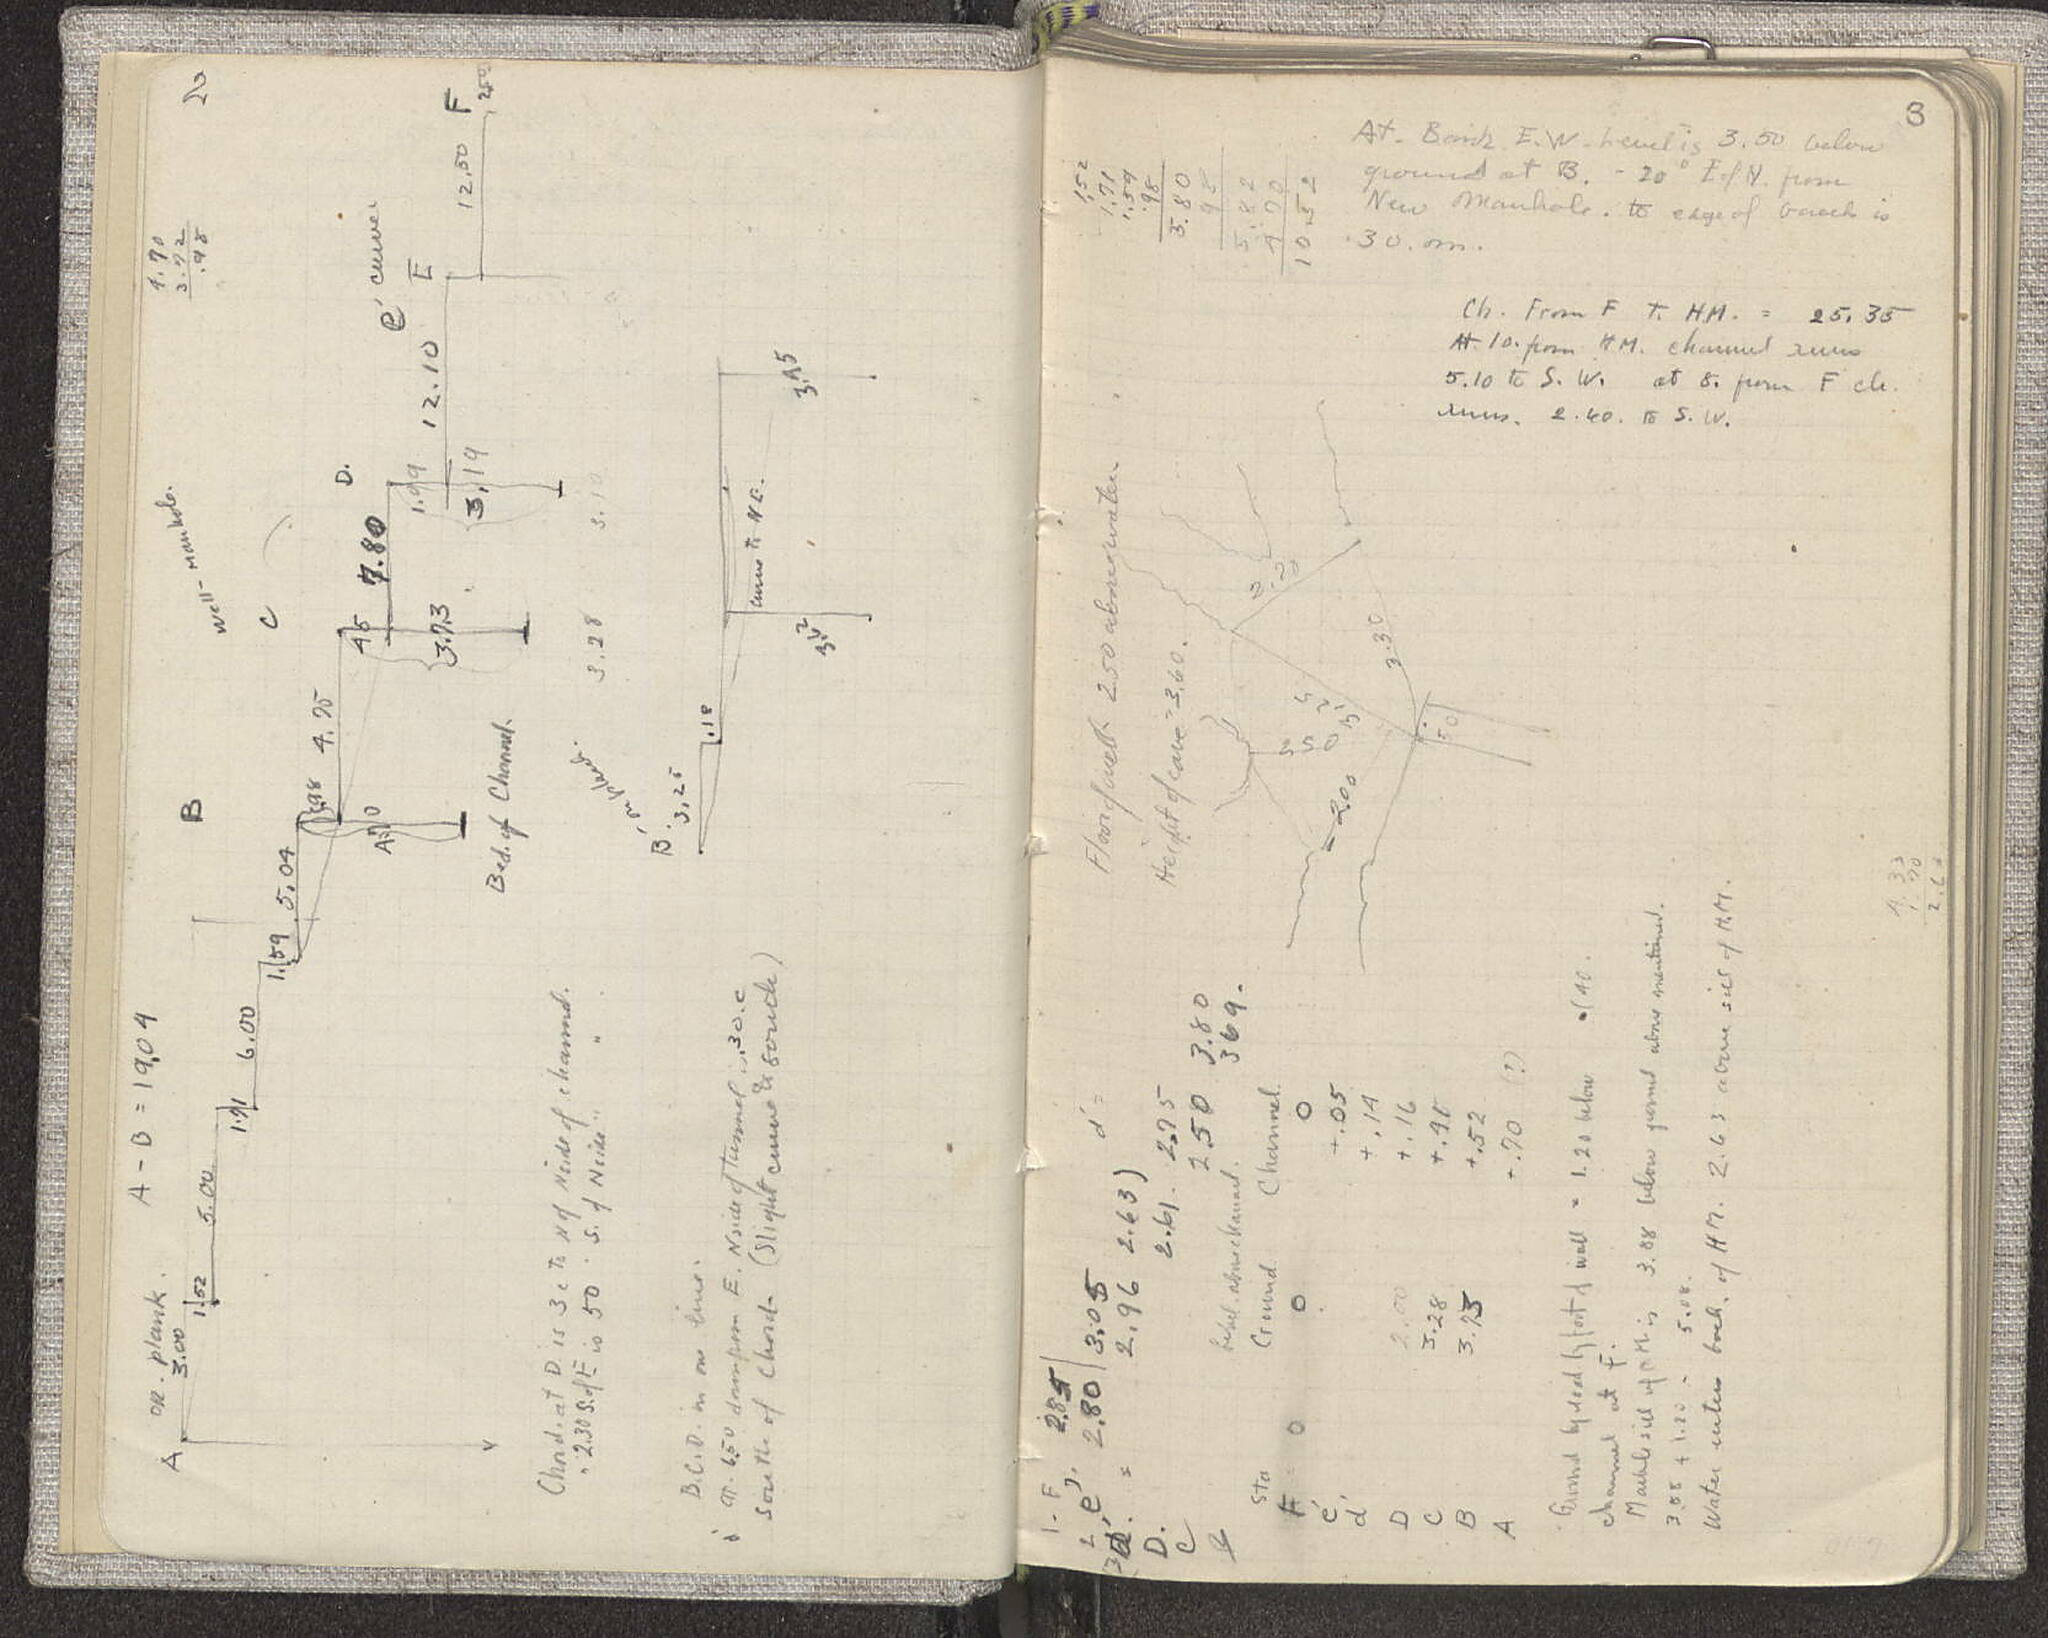 2
A - B = 19.04
4.70
3.72
.98
A on. plank.
3.00
1.52
5.00
1.71
6.00
1.59
5.04
B
.98
4.70
4.95
Well - manhole.
C
.45
3.73
7.80
D.
1.99
3.19
12.10
e' curve
E
12.50
F
Bed. of Channel.
3.28
3.10
B'
3.25
.18
3.42
curves to N E.
3.45
Chord. at D is 3 c to N of N side of channel.
" 2.30 S. of E is 50 " S. of N side " "
B.C.D. in one line.
at 6.50 down from E. N side of tunnel is .30. c
South of Chord. (Slight curve to South)
3
At Bank E.W. Level is 3.50 below
ground at B. - 20° E of N. from
New Manhole. to edge of bank is
30. om.
1.52
1.71
1.59
.98
5.80
98
5.82
4.70
10.52
Ch. From F to HM. = 25.35
At 10. from HM. channel runs
5.10 to S. W. at 8. from F ch.
runs. 2.40. to S. W.
Floor of well 2.50 above water.
Height of cave = 3.60.
2.20
3.30
5.50
2.00
50
1 - F 2.85
2. e'. 2.80 3.05 d' =
3 d'. = 2.96 2.63)
D. 2.61. 2.75
C 2.50 3.80
369.
Level above channel.
Sta Ground Channel
F 0 0 0
e' +.05
d' +.14
D 2.00 +.16
C 3.28 +.48
B 3.73 +.52
A +.70 (?)
Ground by head of foot of wall = 1.20 below
channel at F.
Manhole sill of HM is 3.88 below ground above mentioned.
3.88 + 1.20 = 5.08.
Water enters back. of HM. 2.63 above sill of H.M.
4.33
1.70
2.63